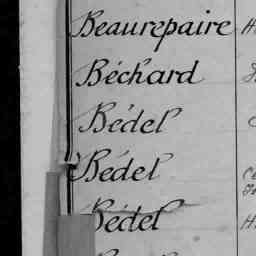 Beaurepaire
Béchard
Bédel
Bédel
Bédel